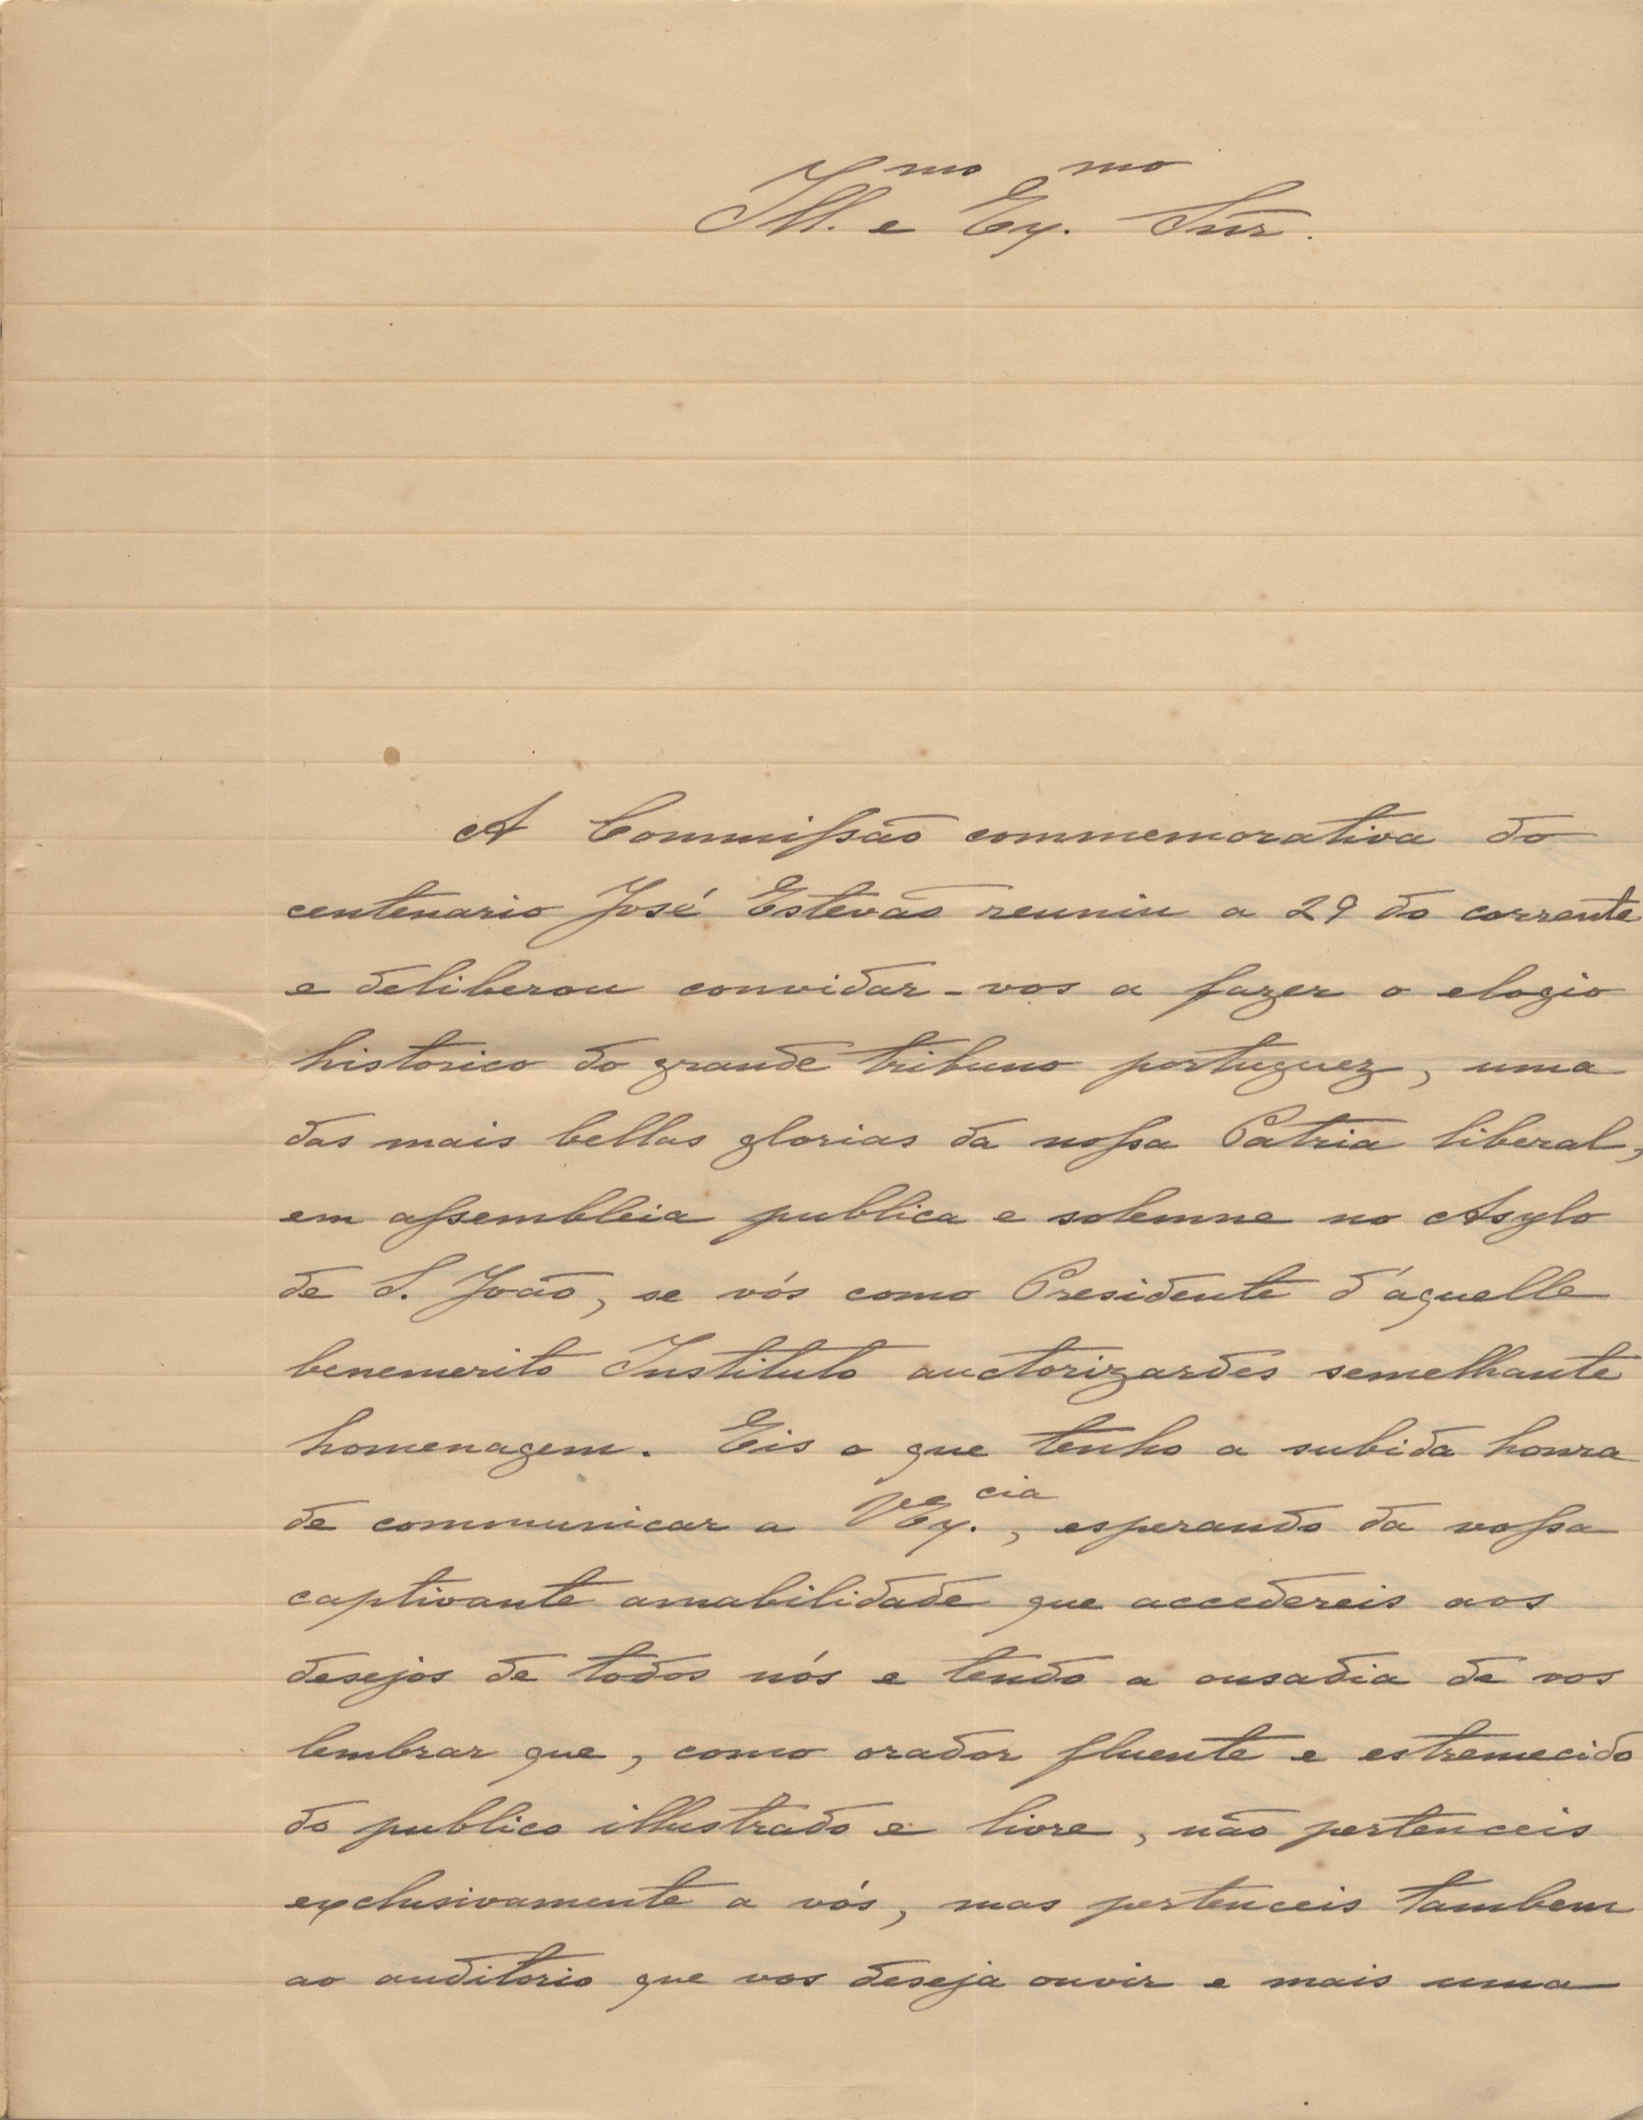 Ill.mo e Ex.mo Snr.
A Commissão commemorativa do
centenario José Estevão reuniu a 29 do corrente
e deliberou convidar-vos a fazer o elogio
historico do grande tribuno portuguez, uma
das mais bellas glorias da nossa Patria liberal,
em assembleia publica e solemne no Asylo
de S. João, se vós como Presidente d'aquelle
benemerito Instituto auctorizardes semelhante
homenagem. Eis o que tenho a subida honra
de communicar a V. Ex.cia, esperando da vossa
captivante amabilidade que accedereis aos
desejos de todos nós e tendo a ousadia de vos
lembrar que, como orador fluente e estremecido
do publico illustrado e livre, não pertenceis
exclusivamente a vós, mas pertenceis tambem
ao auditorio que vos deseja ouvir e mais uma